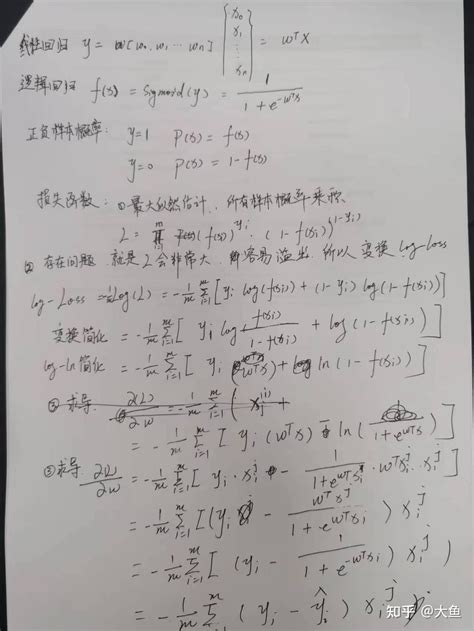 线性回归 y = w[w₀ w₁ ⋯ wₙ] [x₀ x₁ ⋮ xₙ] = wᵀx
逻辑回归 f(x) = Sigmoid(y) = 1/(1 + e^(-wᵀx))
正负样本概率: y=1 P(x) = f(x)
y=0 P(x) = 1-f(x)
损失函数: ①最大似然估计. 所有样本概率乘积
L = ∏_{i=1}^{m} (f(x))^{yᵢ} · (1-f(xᵢ))^{(1-yᵢ)}
② 存在问题 就是L会非常大, 容易溢出. 所以变换 log-loss
log-Loss = Log(L) = -1/m Σ_{i=1}^{m} [yᵢ log(f(xᵢ)) + (1-yᵢ) log(1-f(xᵢ))]
变换简化 = -1/m Σ_{i=1}^{m} [yᵢ log f(xᵢ)/(1-f(xᵢ)) + log(1-f(xᵢ))]
log-ln简化 = -1/m Σ_{i=1}^{m} [yᵢ (wᵀx) + ln(1-f(xᵢ))]
③ 求导
= -1/m Σ_{i=1}^{m} [yᵢ(wᵀx) - ln(1+e^{wᵀx})]
③求导 ∂(L)/∂w = -1/m Σ_{i=1}^{m} [yᵢ·xᵢʲ - 1/(1+e^{wᵀxᵢ}) · wᵀxᵢʲ xᵢʲ]
= -1/m Σ_{i=1}^{m} [(yᵢ - wᵀxʲ/(1+e^{wᵀxᵢ})) xᵢʲ
= -1/m Σ_{i=1}^{m} [(yᵢ - 1/(1+e^{-wᵀxᵢ})) xᵢʲ)
= -1/m Σ_{i=1}^{m} (yᵢ - ŷᵢ) xᵢʲ
知乎 @大鱼